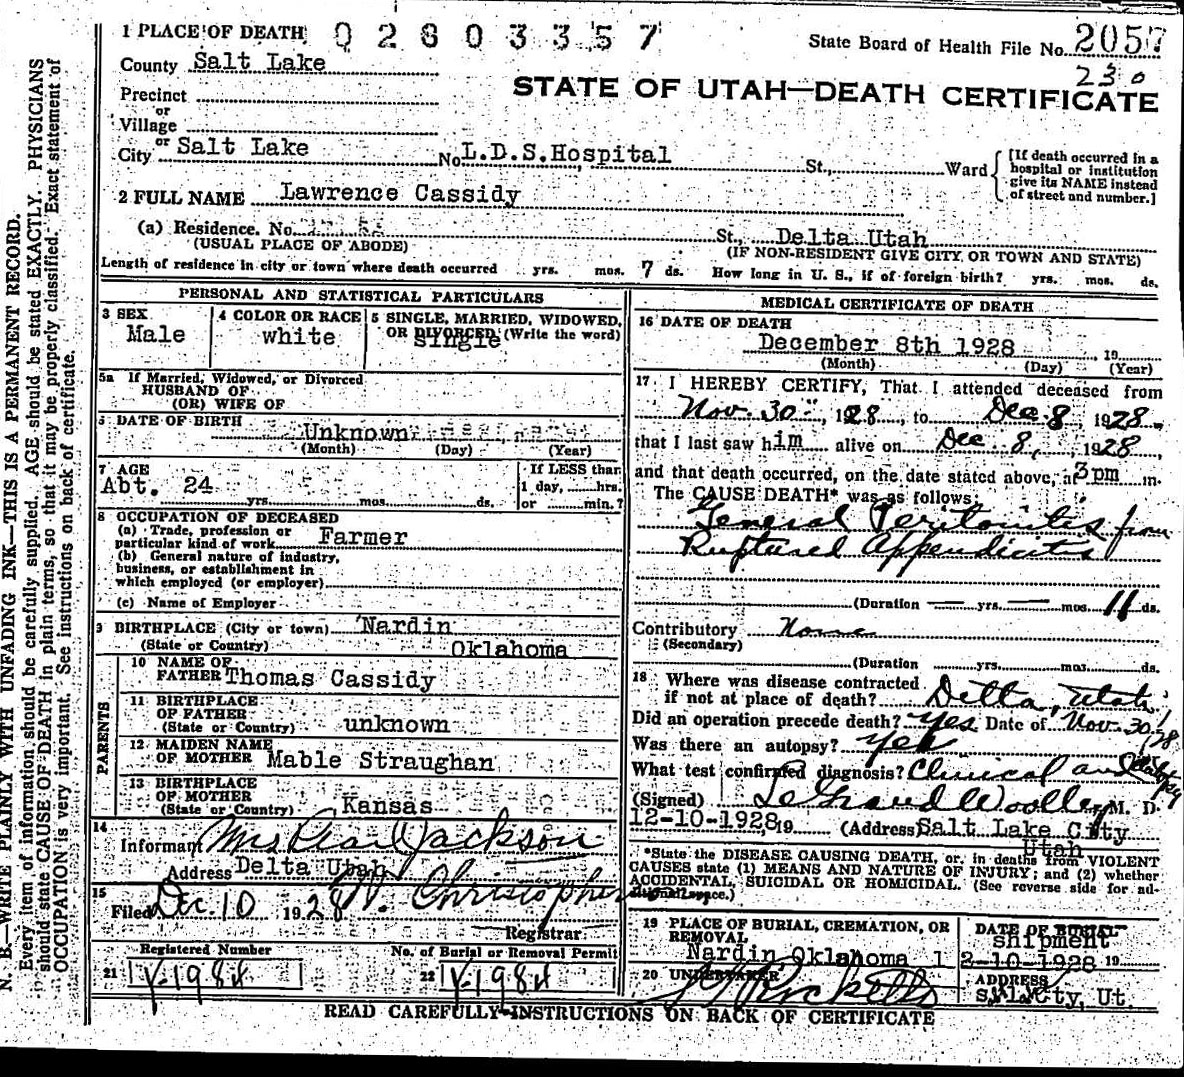 1 PLACE OF DEATH 02803357
State Board of Health File No. 2057
230
County Salt Lake
STATE OF UTAH—DEATH CERTIFICATE
Precinct
or
Village
or
City Salt Lake No. L.D.S.Hospital St., Ward
[If death occurred in a
hospital or institution
give its NAME instead
of street and number.]
2 FULL NAME Lawrence Cassidy
(a) Residence. No. St., Delta Utah
(USUAL PLACE OF ABODE) (IF NON-RESIDENT GIVE CITY OR TOWN AND STATE)
Length of residence in city or town where death occurred yrs. mos. 7 ds. How long in U. S., if of foreign birth? yrs. mos. ds.
PERSONAL AND STATISTICAL PARTICULARS
3 SEX
Male
4 COLOR OR RACE
white
5 SINGLE, MARRIED, WIDOWED,
OR DIVORCED (Write the word)
single
5a If Married, Widowed, or Divorced
HUSBAND OF
(OR) WIFE OF
DATE OF BIRTH
Unknown
(Month) (Day) (Year)
7 AGE
Abt. 24
yrs. mos. ds.
If LESS than
1 day, hrs.
or min.?
8 OCCUPATION OF DECEASED
(a) Trade, profession or
particular kind of work Farmer
(b) General nature of industry,
business, or establishment in
which employed (or employer)
(c) Name of Employer
9 BIRTHPLACE (City or town) Nardin
(State or Country) Oklahoma
PARENTS
10 NAME OF
FATHER Thomas Cassidy
11 BIRTHPLACE
OF FATHER
(State or Country) unknown
12 MAIDEN NAME
OF MOTHER Mable Straughan
13 BIRTHPLACE
OF MOTHER
(State or Country) Kansas
14
Informant Mrs Pearl Jackson
Address Delta Utah
15
Filed Dec. 10 1928 W. Christopherson
Registrar
Registered Number
21 Y-1984
No. of Burial or Removal Permit
22 Y-1984
MEDICAL CERTIFICATE OF DEATH
16 DATE OF DEATH
December 8th 1928, 19
(Month) (Day) (Year)
17 I HEREBY CERTIFY, That I attended deceased from
Nov. 30", 1928, to Dec. 8, 1928,
that I last saw him alive on Dec 8, 1928,
and that death occurred, on the date stated above, at 3 pm m.
The CAUSE DEATH* was as follows:
General Peritonitis from
Ruptured Appendicitis
(Duration — yrs. — mos. 11 ds.
Contributory None
(Secondary)
(Duration yrs. mos. ds.
18 Where was disease contracted
if not at place of death? Delta, Utah
Did an operation precede death? Yes Date of Nov. 30, 28
Was there an autopsy? Yes
What test confirmed diagnosis? Clinical and
(Signed) LeGrand Woolley M. D.
12-10-1928, 19 (Address) Salt Lake City
Utah
*State the DISEASE CAUSING DEATH, or, in deaths from VIOLENT
CAUSES state (1) MEANS AND NATURE OF INJURY; and (2) whether
ACCIDENTAL, SUICIDAL OR HOMICIDAL. (See reverse side for ad-
ditional space.)
19 PLACE OF BURIAL, CREMATION, OR
REMOVAL
Nardin Oklahoma
DATE OF BURIAL
shipment
12-10-1928 19
20 UNDERTAKER
ADDRESS
S.L.City, Ut.
READ CAREFULLY INSTRUCTIONS ON BACK OF CERTIFICATE
N. B.—WRITE PLAINLY WITH UNFADING INK—THIS IS A PERMANENT RECORD.
Every item of information should be carefully supplied. AGE should be stated EXACTLY. PHYSICIANS
should state CAUSE OF DEATH in plain terms, so that it may be properly classified. Exact statement of
OCCUPATION is very important. See instructions on back of certificate.